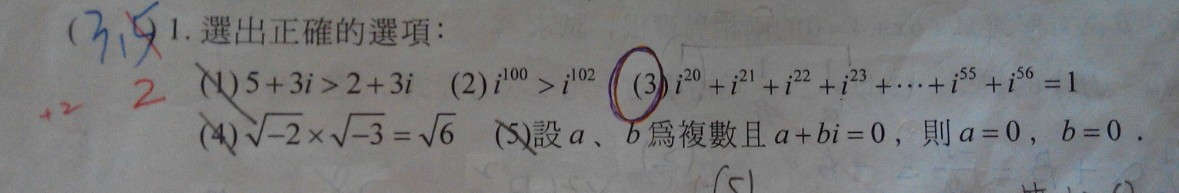 (3,5) 1. 選出正確的選項：
+2 2 (1) 5 + 3i > 2 + 3i (2) i¹⁰⁰ > i¹⁰² (3) i²⁰ + i²¹ + i²² + i²³ + ⋯ + i⁵⁵ + i⁵⁶ = 1
(4) √−2 × √−3 = √6 (5) 設 a、b 為複數且 a + bi = 0，則 a = 0，b = 0．
(5)